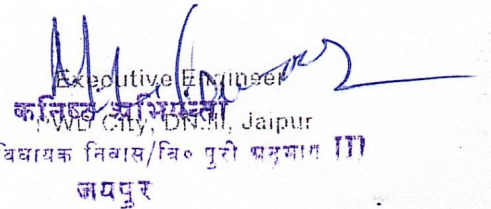 Executive Engineer
कनिष्ठ अभियन्ता
PWD City, DN.III, Jaipur
विधायक निवास/वि० पुरी उपभाग III
जयपुर